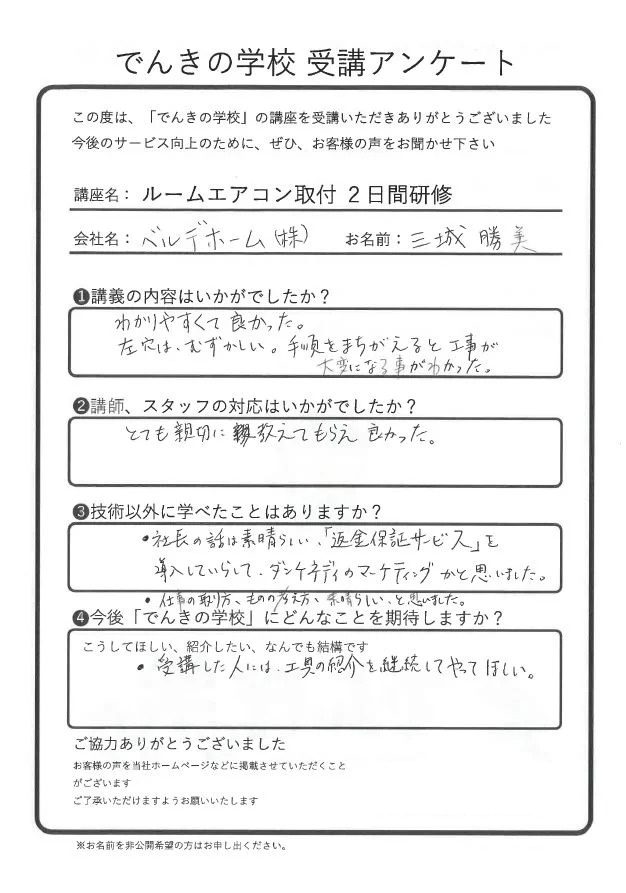 でんきの学校 受講アンケート
この度は、「でんきの学校」の講座を受講いただきありがとうございました
今後のサービス向上のために、ぜひ、お客様の声をお聞かせ下さい
講座名： ルームエアコン取付 2日間研修
会社名： ベルデホーム(株) お名前： 三城 勝美
❶講義の内容はいかがでしたか？
わかりやすくて良かった。
左穴は、むずかしい。手順をまちがえると工事が
大変になる事がわかった。
❷講師、スタッフの対応はいかがでしたか？
とても親切に教えてもらえ良かった。
❸技術以外に学べたことはありますか？
•社長の話は素晴らしい、「返金保証サービス」を
導入していらして、ダンケネディのマーケティングかと思いました。
•仕事の取り方、ものの考え方、素晴らしい、と思いました。
❹今後「でんきの学校」にどんなことを期待しますか？
こうしてほしい、紹介したい、なんでも結構です
•受講した人には、工具の紹介を継続してやってほしい。
ご協力ありがとうございました
お客様の声を当社ホームページなどに掲載させていただくこと
がございます
ご了承いただけますようお願いいたします
※お名前を非公開希望の方はお申し出ください。